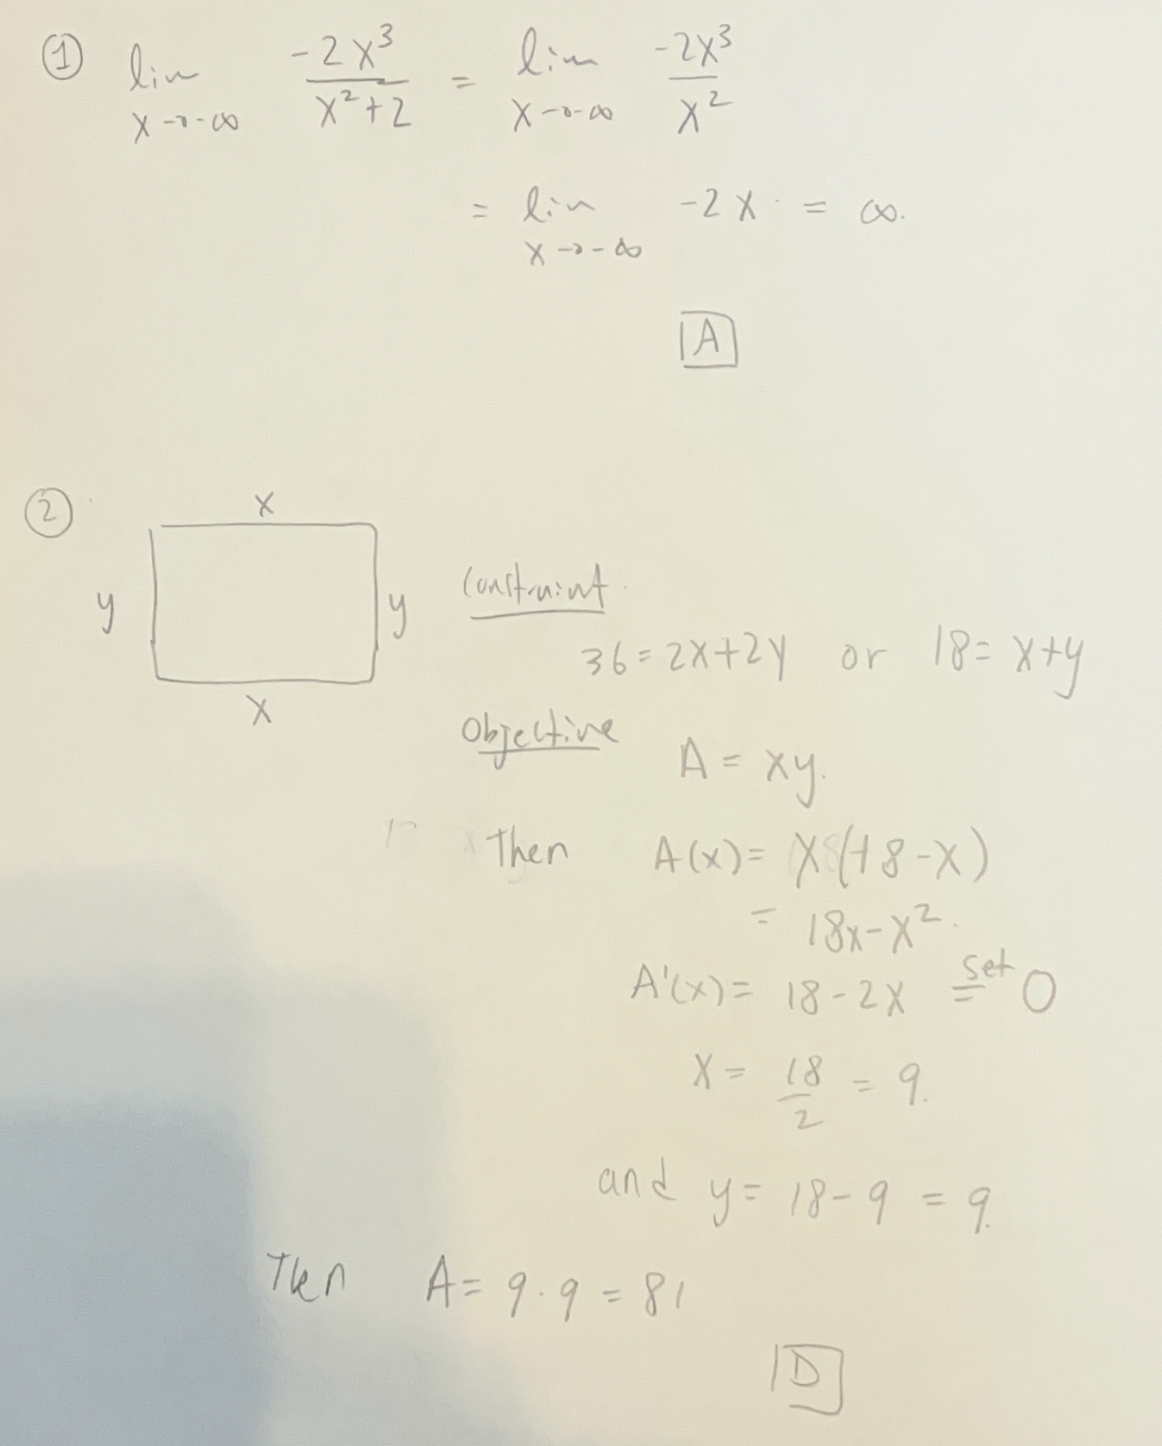 ① lim x→-∞ -2x³/(x²+2) = lim x→-∞ -2x³/x²
= lim x→-∞ -2x = ∞.
A
②
x
y y
x
Constraint
36 = 2x+2y or 18 = x+y
Objective
A = xy.
Then A(x) = x(18-x)
= 18x-x².
A'(x) = 18-2x set= 0
x = 18/2 = 9.
and y = 18-9 = 9.
Then A = 9·9 = 81
D